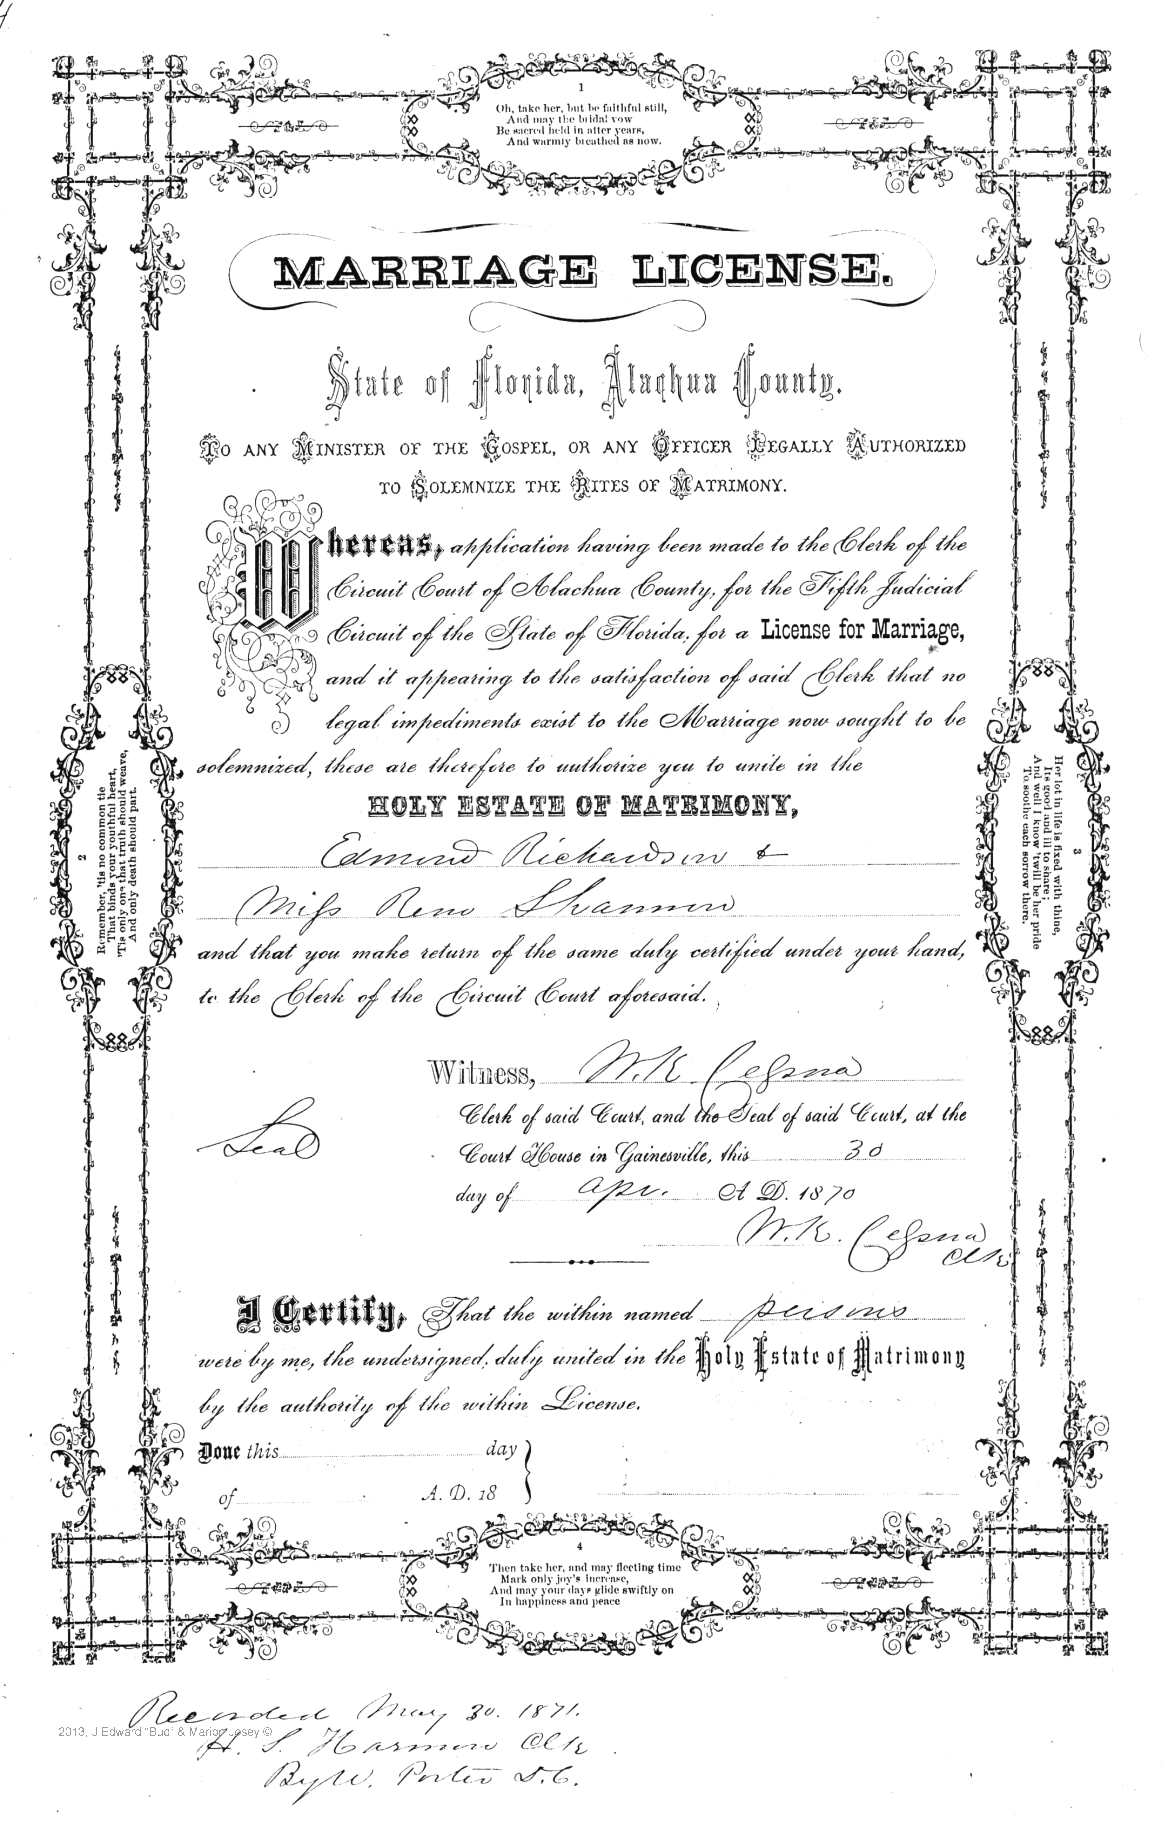 1
Oh, take her, but be faithful still,
And may the bridal vow
Be sacred held in after years,
And warmly breathed as now.
MARRIAGE LICENSE.
State of Florida, Alachua County.
TO ANY MINISTER OF THE GOSPEL, OR ANY OFFICER LEGALLY AUTHORIZED
TO SOLEMNIZE THE RITES OF MATRIMONY.
Whereas, application having been made to the Clerk of the
Circuit Court of Alachua County, for the Fifth Judicial
Circuit of the State of Florida, for a License for Marriage,
and it appearing to the satisfaction of said Clerk that no
legal impediments exist to the Marriage now sought to be
solemnized, these are therefore to authorize you to unite in the
HOLY ESTATE OF MATRIMONY,
Edmond Richardson &
Miss Reno Shannon
and that you make return of the same duly certified under your hand,
to the Clerk of the Circuit Court aforesaid.
2
Remember, 'tis no common tie
That binds your youthful heart,
'Tis only one that truth should weave,
And only death should part.
3
Her lot in life is fixed with thine,
Its good and ill to share;
And well I know 'twill be her pride
To soothe each sorrow there.
Witness, W. K. Cessna
Clerk of said Court, and the Seal of said Court, at the
Seal
Court House in Gainesville, this 30
day of Apr. A D. 1870
W. K. Cessna
Clk
I Certify, That the within named persons
were by me, the undersigned, duly united in the Holy Estate of Matrimony
by the authority of the within License.
Done this day
of A. D. 18
4
Then take her, and may fleeting time
Mark only joy's increase,
And may your days glide swiftly on
In happiness and peace
Recorded May 30. 1871.
2013, J Edward "Bud" & Marion Josey ©
H. S. Harmon Clk
By W. Porter D.C.